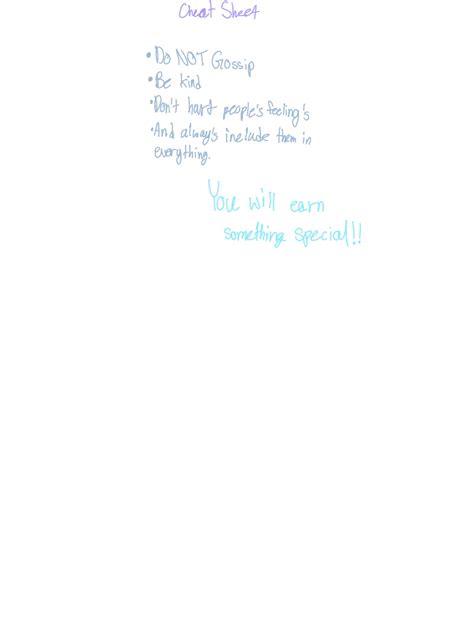 Cheat Sheet
• Do NOT Gossip
• Be kind
• Don't hart people's feeling's
• And always include them in
everything.
You will earn
something special!!